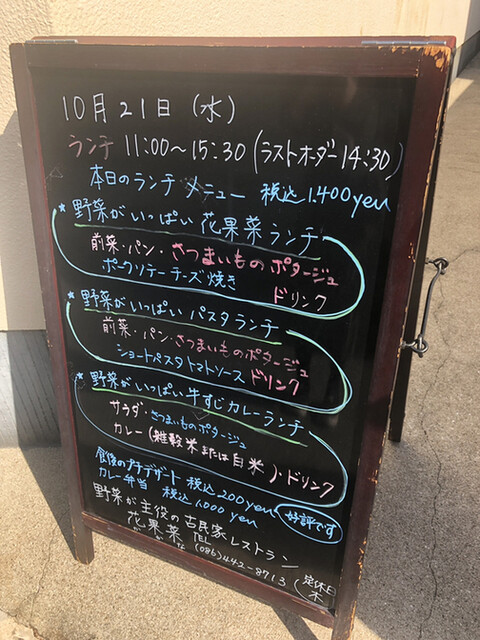 10月21日 (水)
ランチ 11:00〜15:30 (ラストオーダー 14:30)
本日のランチメニュー 税込1,400yen
* 野菜がいっぱい 花果菜ランチ
前菜・パン・さつまいものポタージュ
ポークソテーチーズ焼き ドリンク
* 野菜がいっぱい パスタランチ
前菜・パン・さつまいものポタージュ
ショートパスタトマトソース ドリンク
* 野菜がいっぱい牛すじカレーランチ
サラダ・さつまいものポタージュ
カレー (雑穀米または白米)・ドリンク
食後のプチデザート 税込200yen
カレー弁当 税込1,000yen 好評です
野菜が主役の古民家レストラン
花果菜 TEL (086)442-8713 (定休日
木